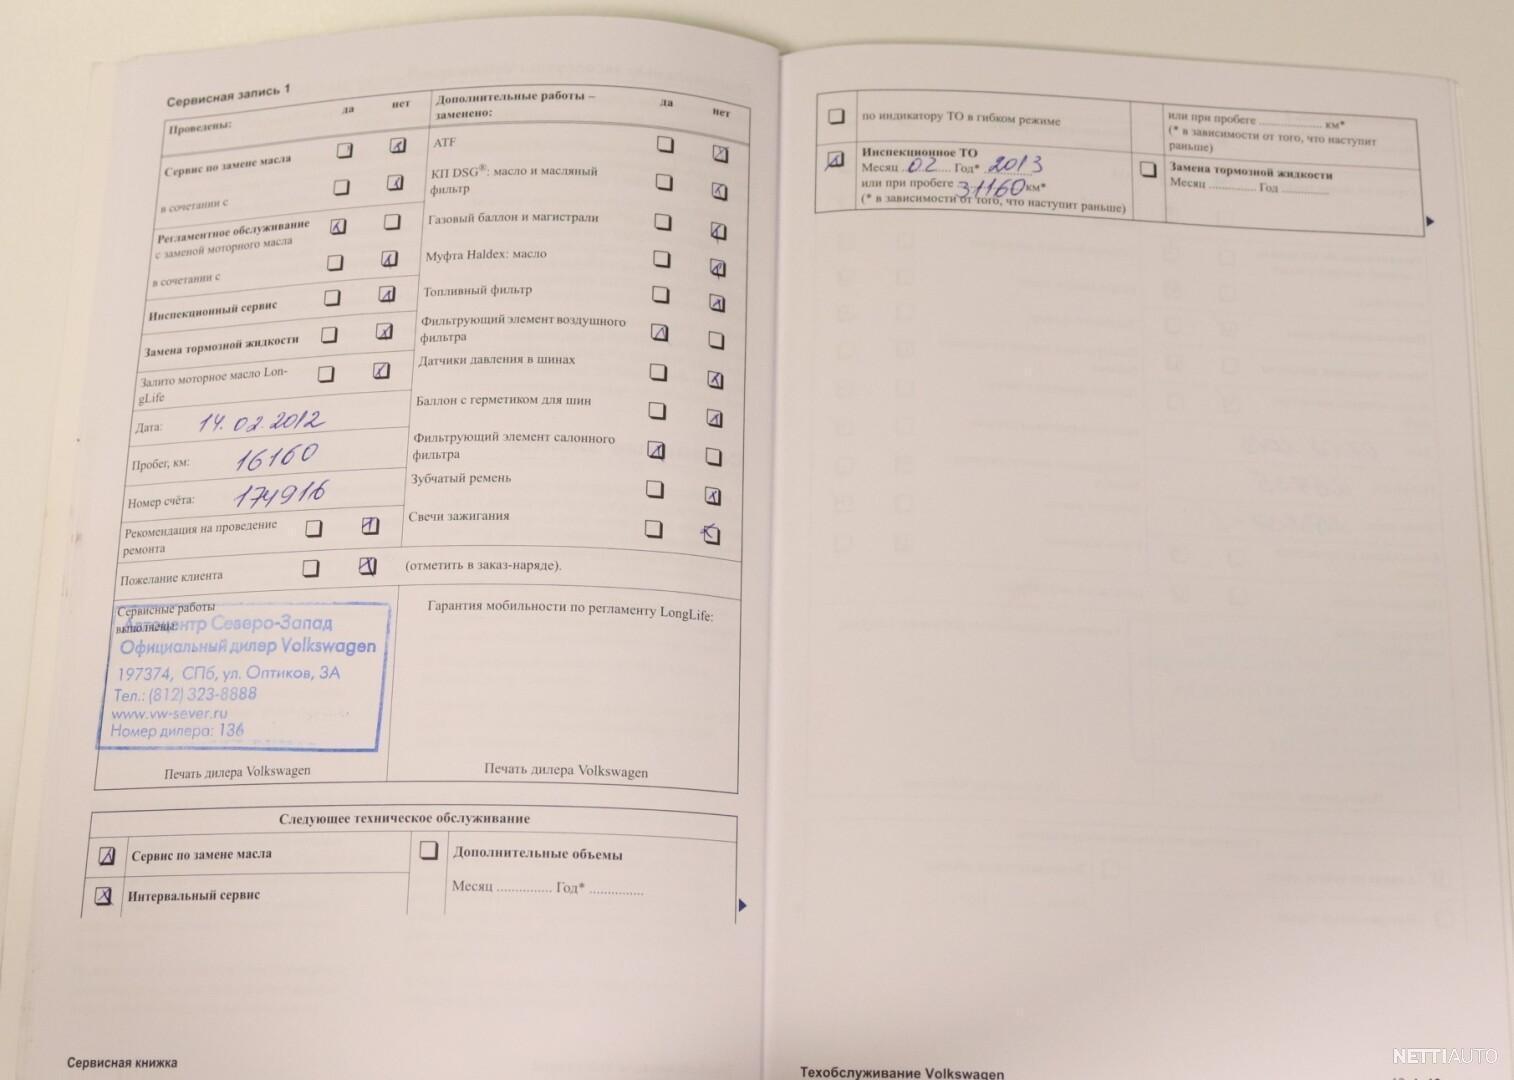 Сервисная запись 1
Проведены:
да
нет
Сервис по замене масла
в сочетании с
Регламентное обслуживание
с заменой моторного масла
в сочетании с
Инспекционный сервис
Замена тормозной жидкости
Залито моторное масло Lon-
gLife
Дата: 14.02.2012
Пробег, км: 16160
Номер счёта: 174916
Рекомендация на проведение
ремонта
Пожелание клиента
(отметить в заказ-наряде).
Дополнительные работы –
заменено:
да
нет
ATF
КП DSG®: масло и масляный
фильтр
Газовый баллон и магистрали
Муфта Haldex: масло
Топливный фильтр
Фильтрующий элемент воздушного
фильтра
Датчики давления в шинах
Баллон с герметиком для шин
Фильтрующий элемент салонного
фильтра
Зубчатый ремень
Свечи зажигания
Сервисные работы
выполнены:
Автоцентр Северо-Запад
Официальный дилер Volkswagen
197374, СПб, ул. Оптиков, 3А
Тел.: (812) 323-8888
www.vw-sever.ru
Номер дилера: 136
Печать дилера Volkswagen
Гарантия мобильности по регламенту LongLife:
Печать дилера Volkswagen
Следующее техническое обслуживание
Сервис по замене масла
Интервальный сервис
Дополнительные объемы
Месяц ............... Год* ...............
Сервисная книжка
по индикатору ТО в гибком режиме
Инспекционное ТО
Месяц 02 Год* 2013
или при пробеге 31160 км*
(* в зависимости от того, что наступит раньше)
или при пробеге .................... км*
(* в зависимости от того, что наступит
раньше)
Замена тормозной жидкости
Месяц ............... Год ...............
Техобслуживание Volkswagen
NETTIAUTO